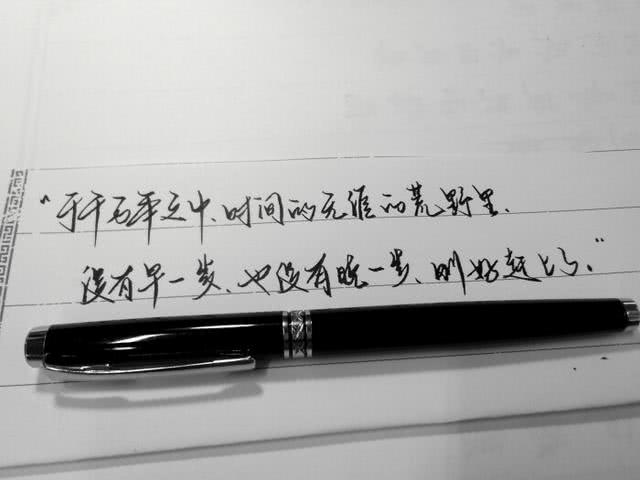 “于千万年之中、时间的无涯的荒野里、
没有早一步、也没有晚一步、刚好赶上了。”